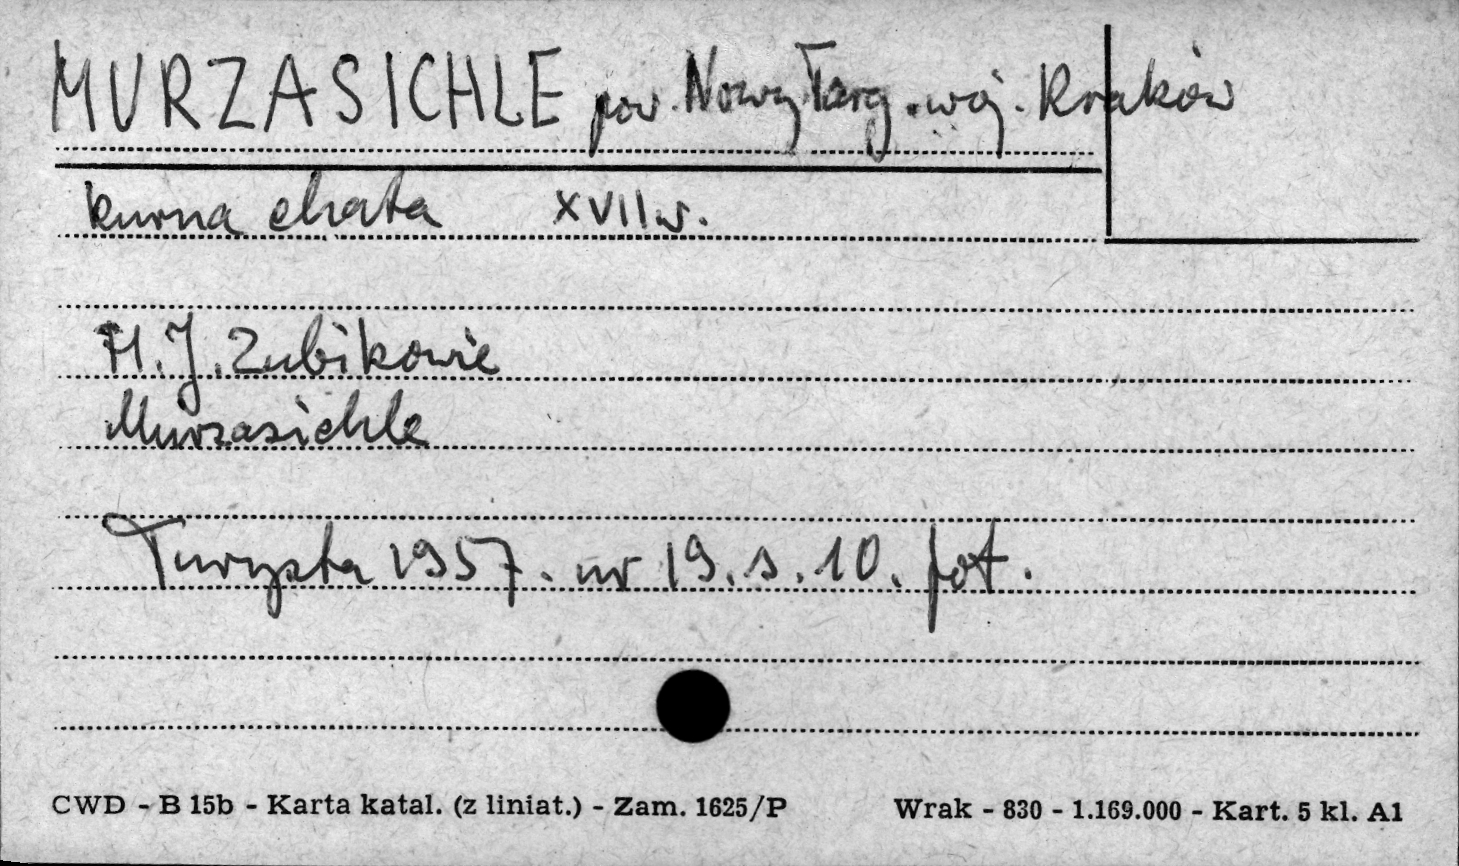 MURZASICHLE pow. Nowy Targ. woj. Kraków
kurna chata XVII w.
H. J. Zubikowie
Murzasichle
Turysta 1957. nr 19. s. 10. fot.
CWD - B 15b - Karta katal. (z liniat.) - Zam. 1625/P Wrak - 830 - 1.169.000 - Kart. 5 kl. A1